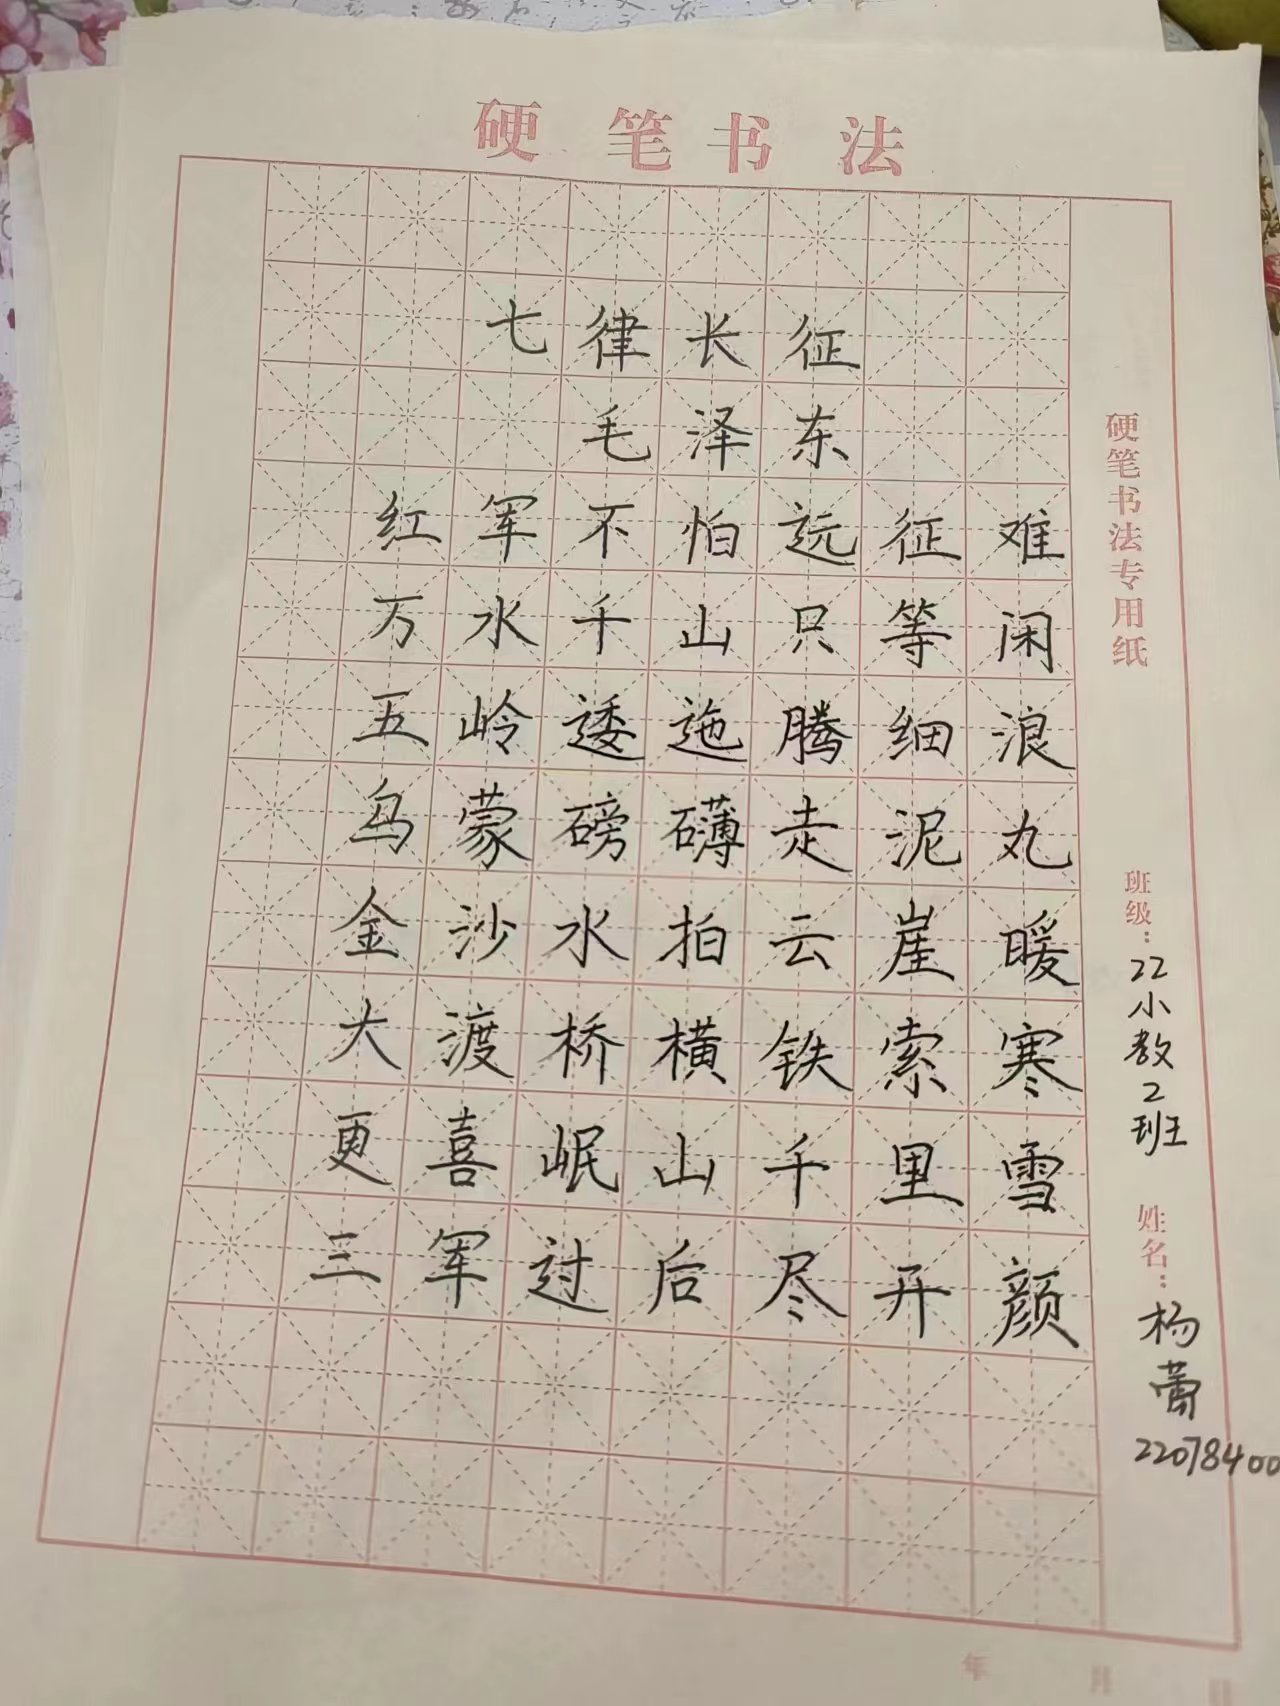 硬笔书法
七律长征
毛泽东
红军不怕远征难
万水千山只等闲
五岭逶迤腾细浪
乌蒙磅礴走泥丸
金沙水拍云崖暖
大渡桥横铁索寒
更喜岷山千里雪
三军过后尽开颜
硬笔书法专用纸
班级：22小教2班
姓名：杨蕾
22078400
年 月 日